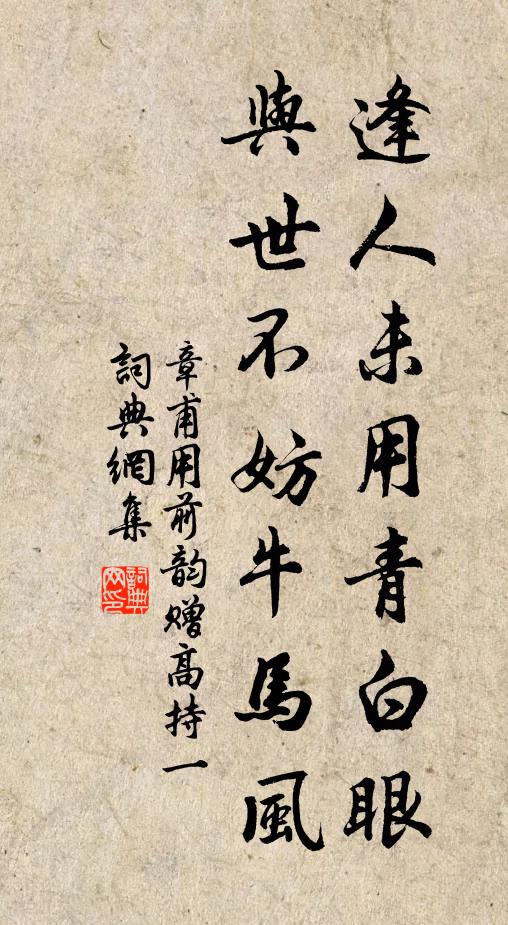 逢人未用青白眼
與世不妨牛馬風
章甫用前韵贈高持一
詞典網集
詞典
网印